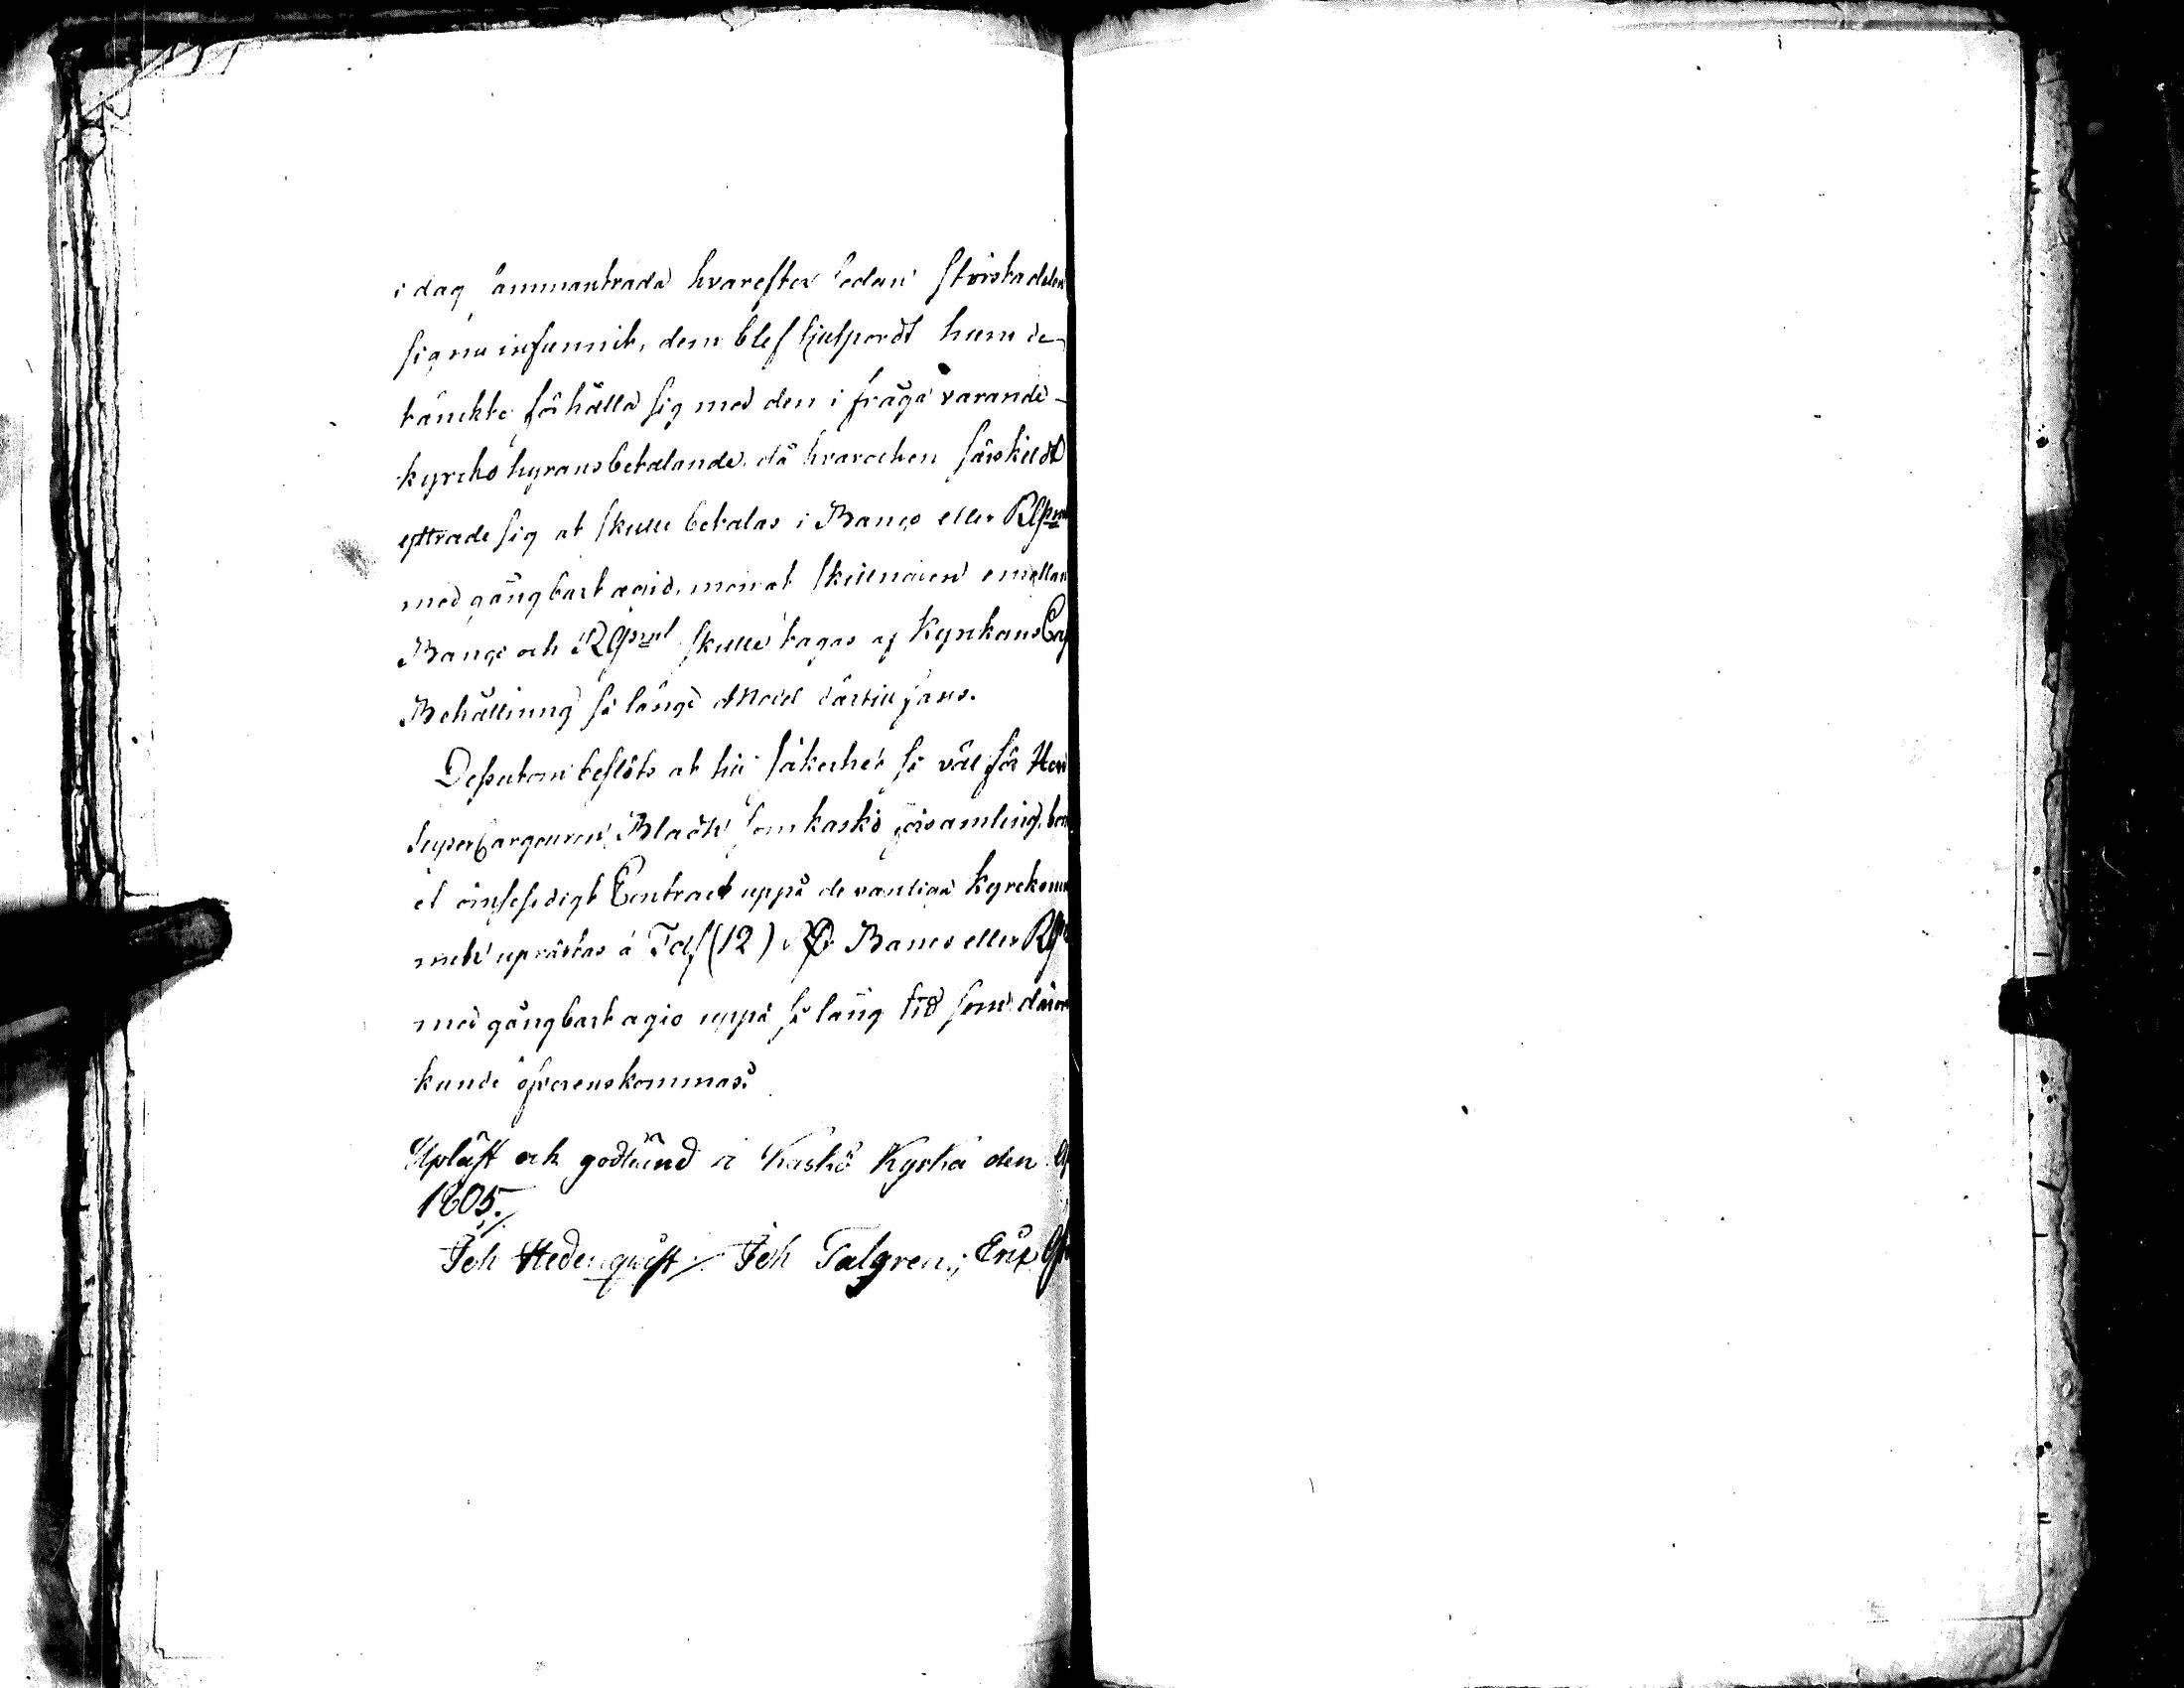 i dag ammantrada hvarefter sedan störstadelen
sig nu infunnit, dem blef tilspordt huru de
tänckte förhålla sig med den i fråga varande
kyrcko hyrans betalande, då hvar och en särskildt
yttrade sig at skulle betalas i Banco eller
med gångbart agio, men at skilnaden emellan
Banço och skulle tagas af Kyrkans
Behållning så länge dertill fans.
Dessutom beslöts at till säkerhet så väl för
SuperCargeuren Bladh som Kaskö församling, bör
et ömsesidigt Contract uppå de vanliga
uprättas á Tolf (12) RD Banco eller
med gångbart agio uppå så lång tid som
kunde öfverenskommas.
Upläst och godkänd i Kaskö Kyrka den
1805./.
Joh Hedenquist / Joh Talgren; Eric